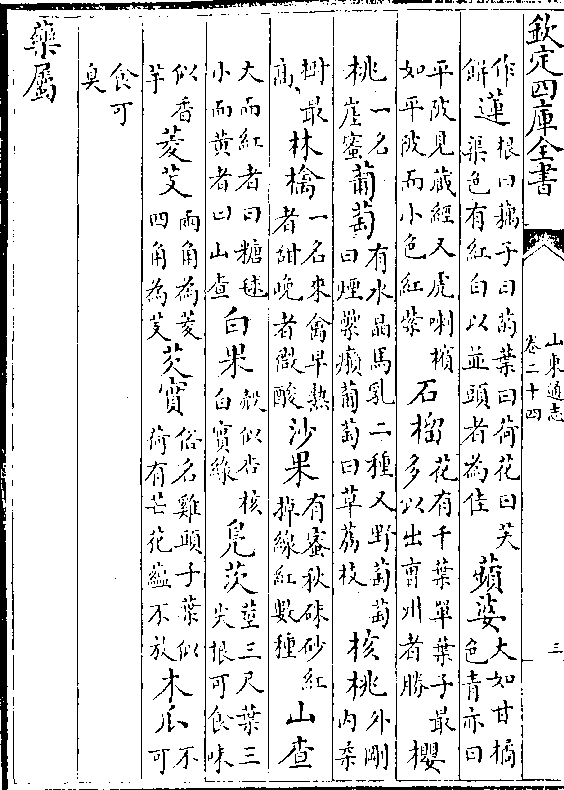 欽定四庫全書
山東通志
卷二十四
三
作餅蓮根曰藕子曰菂葉曰荷花曰芙渠色有紅白以並頭者為佳蘋婆大如甘橘色青亦曰
平陂見藏經又虎喇檳如平陂而小色紅紫石榴花有千葉單葉子最多以出曹州者勝櫻
桃一名崖蜜葡萄有水晶馬乳二種又野萄萄曰煙黎癩葡萄曰草荔枝核桃外剛内柔
樹最高林檎一名來禽早熟者甜晚者微酸沙果有蜜秋硃砂紅掉線紅數種山查
大而紅者曰糖毬小而黄者曰山查白果殻似杏核白實緑鳬茨莖三尺葉三尖根可食味
似香芋菱芰兩角為菱四角為芰芡實俗名雞頭子葉似荷有芒花藴不放木瓜不可
食可臭
藥屬